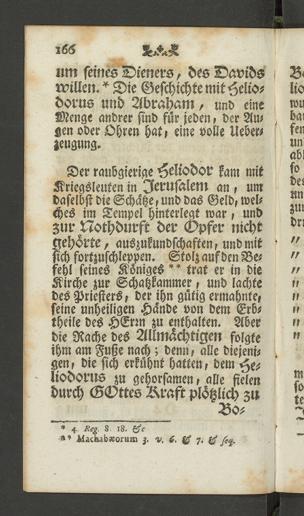 166
um seines Dieners, des Davids
willen. * Die Geschichte mit Helio-
dorus und Abraham, und eine
Menge andrer sind für jeden, der Au-
gen oder Ohren hat, eine volle Ueber-
zeugung.
Der raubgierige Heliodor kam mit
Kriegsleuten in Jerusalem an, um
daselbst die Schätze, und das Geld, wel-
ches im Tempel hinterlegt war, und
zur Nothdurft der Opfer nicht
gehörte, auszukundschaften, und mit
sich fortzuschleppen. Stolz auf den Be-
fehl seines Königes ** trat er in die
Kirche zur Schatzkammer, und lachte
des Priesters, der ihn gütig ermahnte,
seine unheiligen Hände von dem Erb-
theile des HErrn zu enthalten. Aber
die Rache des Allmächtigen folgte
ihm am Fuße nach; denn, alle diejeni-
gen, die sich erkühnt hatten, dem He-
liodorus zu gehorsamen, alle fielen
durch GOttes Kraft plötzlich zu
Bo-
* 4. Reg. 8. 18. &c
** Machabæorum 3. v. 6. & 7. & seq.